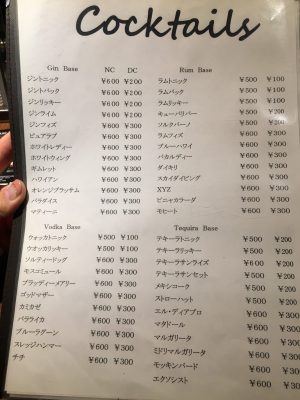 Cocktails
Gin Base NC DC
ジントニック ¥600 ¥200
ジントバック ¥600 ¥200
ジンリッキー ¥600 ¥200
ジンライム ¥600 ¥200
ジンフィズ ¥600 ¥300
ピュアラブ ¥600 ¥300
ホワイトレディー ¥600 ¥300
ホワイトウィング ¥600 ¥300
ギムレット ¥600 ¥300
ハワイアン ¥600 ¥300
オレンジブラッサム ¥600 ¥300
パラダイス ¥600 ¥300
マティーニ ¥600 ¥300
Rum Base
ラムトニック ¥500 ¥100
ラムバック ¥500 ¥100
ラムリッキー ¥500 ¥100
キューバリバー ¥500 ¥200
ソルクバーノ ¥500 ¥200
ラムフィズ ¥600 ¥300
ブルーハワイ ¥600 ¥300
バカルディー ¥600 ¥300
ダイキリ ¥600 ¥300
スカイダイビング ¥600 ¥300
XYZ ¥600 ¥300
ピニャカラーダ ¥600 ¥300
モヒート ¥600 ¥300
Vodka Base
ウォッカトニック ¥500 ¥100
ウオッカリッキー ¥500 ¥100
ソルティードッグ ¥600 ¥300
モスコミュール ¥600 ¥300
ブラッディーメアリー ¥600 ¥300
ゴッドマザー ¥600 ¥300
カミカゼ ¥600 ¥300
バラライカ ¥600 ¥300
ブルーラグーン ¥600 ¥300
スレッジハンマー ¥600 ¥300
チチ ¥600 ¥300
Tequira Base
テキーラトニック ¥500 ¥200
テキーラリッキー ¥500 ¥200
テキーラサンライズ ¥500 ¥200
テキーラサンセット ¥500 ¥200
メキシコーク ¥500 ¥200
ストローハット ¥500 ¥200
エル・ディアブロ ¥600 ¥300
マタドール ¥600 ¥300
マルガリータ ¥600 ¥300
ミドリマルガリータ ¥600 ¥300
モッキンバード ¥600 ¥300
エクソシスト ¥600 ¥300